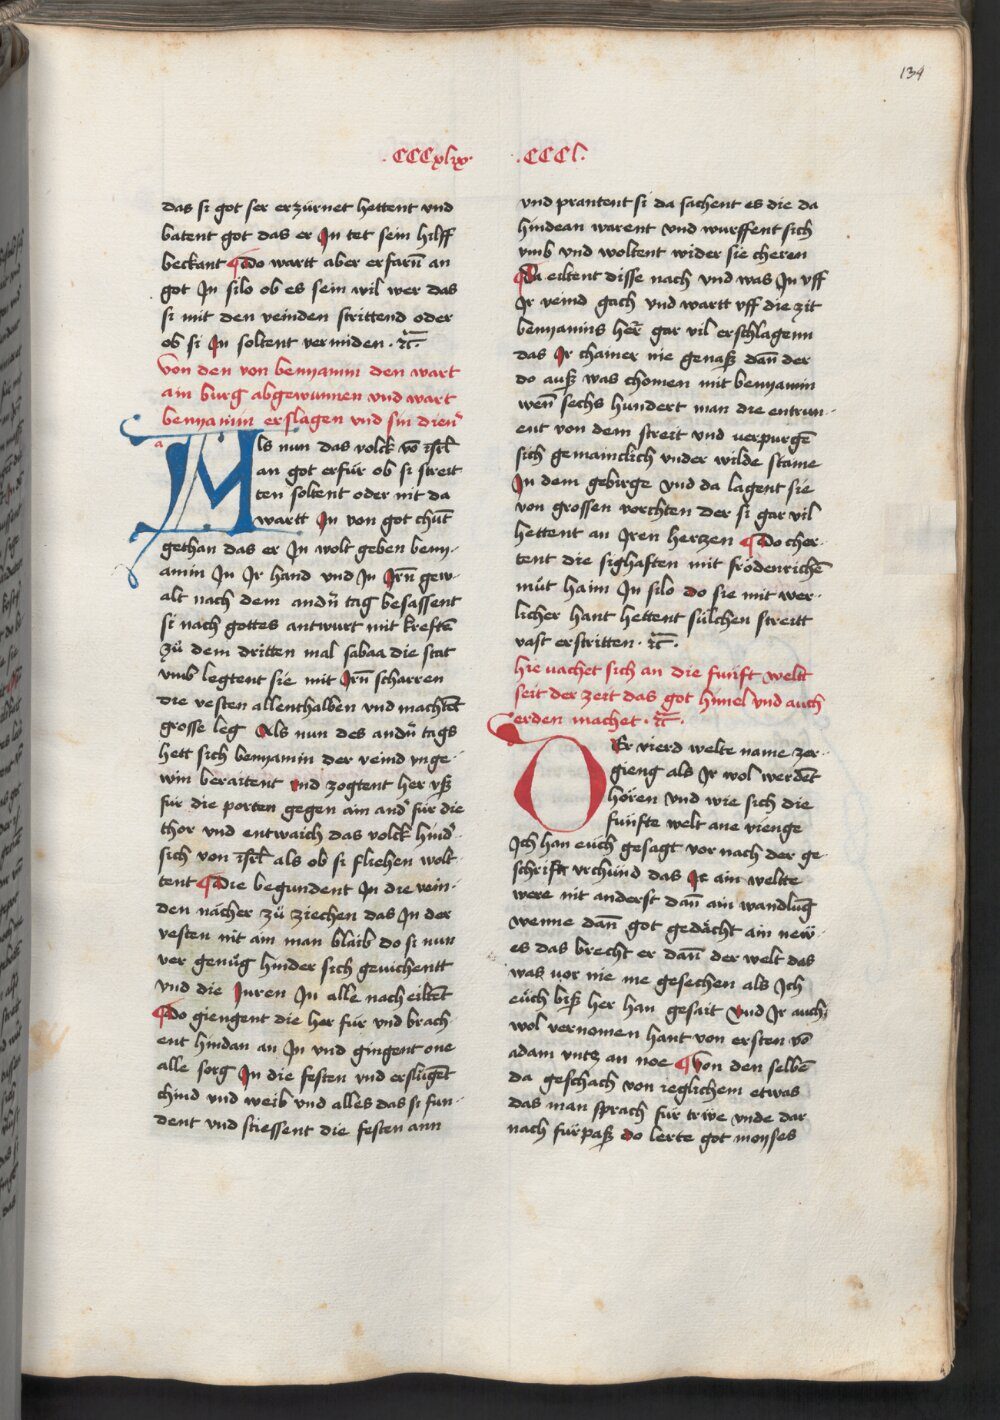 134
.CCCxlix.
das si got ser erzúrnet hettent vnd
batent got das er In tet sein hilff
beckant Do wartt aber erfarn̄ an
got In silo ob es sein wil wer das
si mit den veinden strittend oder
ob si In soltent vermiden · ꝛc̄ ·
Von den von benyamin den wart
ain burg abgewunnen vnd wart
benyamin erslagen vnd sin dien̉
a
Als nun das volck vō isrl̄
an got erfúr ob si streit
ten soltent oder nit da
wartt In von got chūt
gethan das er In wolt geben beny-
amin In Ir hand vnd In Irn̄ gew-
alt nach dem andn̄ tag besassent
si nach gottes antwurt mit kreftē
zů dem dritten mal gabaa die stat
vmb legtent sie mit Irn̄ scharren
die vesten allenthalben vnd machtēt
grosse leg Als nun des andn̄ tags
hett sich benyamin der veind vnge-
win beraitent vnd zogtent her vſz
fúr die porten gegen ain and̉ fúr die
thor vnd entwaich das volck hind̉
sich von isrl̄ als ob si fliehen wolt-
tent Die begundent In die vein-
den nácher zů ziechen das In der
vesten nit ain man blaib do si nun
ver genůg hinder sich gewichentt
vnd die Iuren In alle nach eiltēt
Do giengent die her fúr vnd brach-
ent hindan an In vnd gingent one
alle sorg In die festen vnd erslůgēt
chind vnd weib vnd alles das si fun-
dent vnd stiessent die festen ann
.CCCl.
vnd prantent si da sachent es die da
hindean warent vnd wurffent sich
vmb vnd woltent wider sie cheren
Da eiltent disse nach vnd was In vff
Ir veind gach vnd wartt vff die zit
benyamins her̄ gar vil erschlagenn
das Ir chainer nie genaſz dan̄ der
do auſz was chomen mit benyamin
wen̄ sechs hundert man die entrun-
ent von dem streit vnd verpurgē
sich gemaincklich vnder wilde staine
In dem gebirge vnd da lagent sie
von grossen vorchten der si gar vil
hettent an Iren hertzen Do cher-
tent die sighaften mit frödenrichē
můt haim In silo do sie mit wer-
licher hant hettent súlchen streitt
vast erstritten · ꝛc̄ ·
hie vachet sich an die funft weltt
seit der zeit das got himel vnd auch
erden machet · ꝛc̄ ·
DEr vierd welte name zer-
gieng als Ir wol werdēt
hören vnd wie sich die
fúnfte welt ane vienge
Ich han eúch gesagt vor nach der ge-
schrift vrchúnd das Ir ain weltte
were nit anderst dan̄ ain wandlūg
wenne dan̄ got gedácht ain new-
es das brecht er dan̄ der welt das
was vor nie me gesechen als Ich
eúch biſz her han gesait Vnd Ir auch
wol vernomen hant von ersten vō
adam vntz an noe Von den selbē
da geschach von ieglichem etwas
das man sprach fúr trwe vnde dar
nach fúrpaſz do lerte got moyses